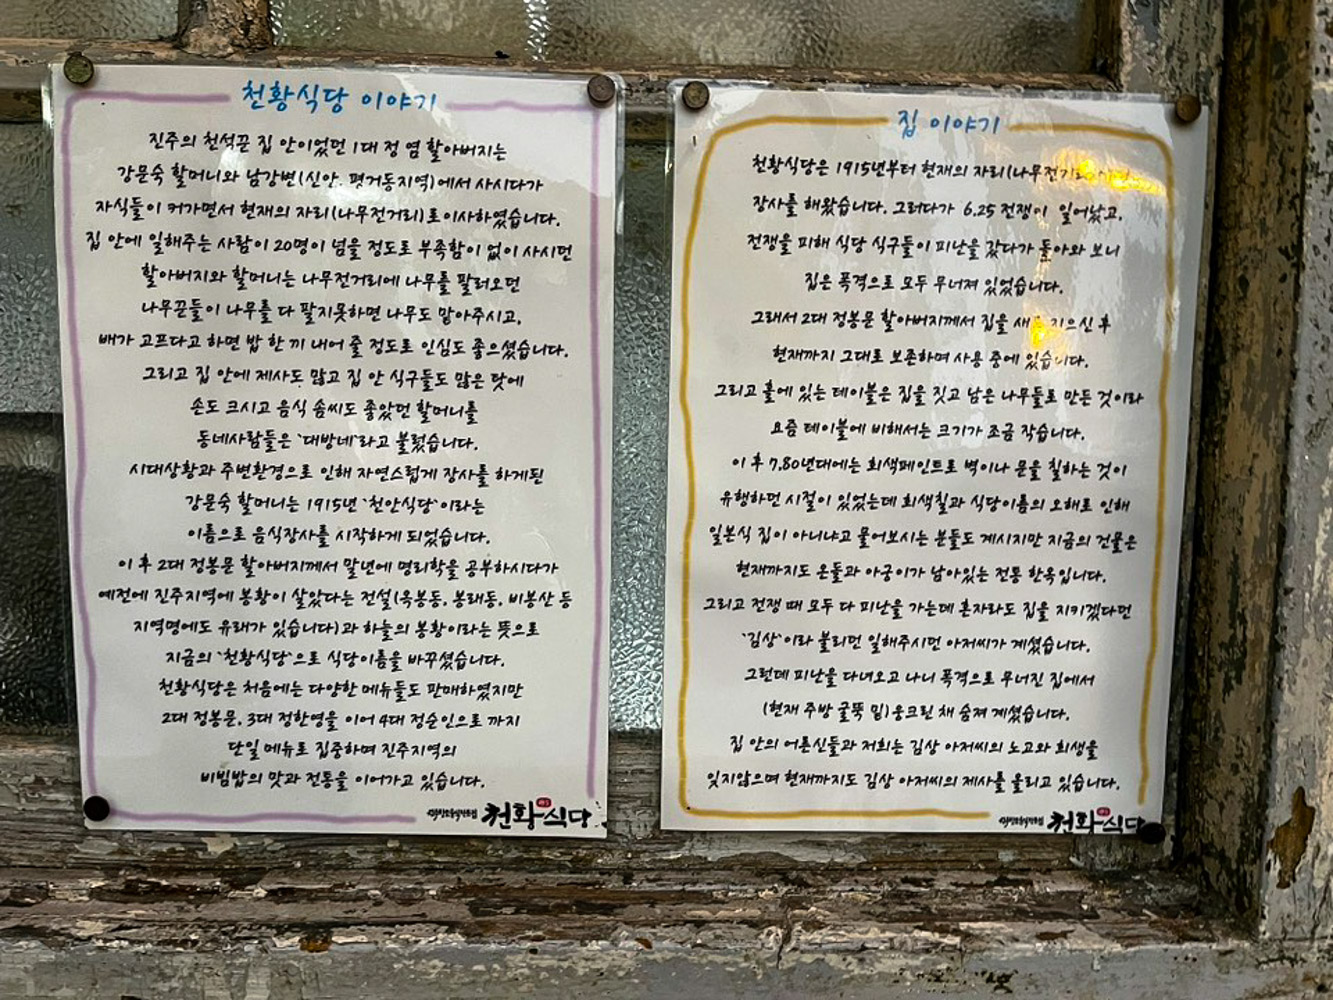 천황식당 이야기
진주의 천석꾼 집 안이었던 1대 정 염 할아버지는
강문숙 할머니와 남강변(신안, 평거동지역)에서 사시다가
자식들이 커가면서 현재의 자리(나무전거리)로이사하였습니다.
집 안에 일해주는 사람이 20명이 넘을 정도로 부족함이 없이 사시던
할아버지와 할머니는 나무전거리에 나무를 팔러오던
나무꾼들이 나무를 다 팔지못하면 나무도 맡아주시고,
배가 고프다고 하면 밥 한 끼 내어 줄 정도로 인심도 좋으셨습니다.
그리고 집 안에 제사도 많고 집 안 식구들도 많은 탓에
손도 크시고 음식 솜씨도 좋았던 할머니를
동네사람들은 '대방네'라고 불렀습니다.
시대상황과 주변환경으로 인해 자연스럽게 장사를 하게된
강문숙 할머니는 1915년 '천안식당'이라는
이름으로 음식장사를 시작하게 되었습니다.
이 후 2대 정봉문 할아버지께서 말년에 명리학을 공부하시다가
예전에 진주지역에 봉황이 살았다는 전설(옥봉동, 봉래동, 비봉산 등
지역명에도 유래가 있습니다)과 하늘의 봉황이라는 뜻으로
지금의 '천황식당'으로 식당이름을 바꾸셨습니다.
천황식당은 처음에는 다양한 메뉴들도 판매하였지만
2대 정봉문, 3대 정한영을 이어 4대 정순인으로 까지
단일 메뉴로 집중하며 진주지역의
비빔밥의 맛과 전통을 이어가고 있습니다.
천황식당
집 이야기
천황식당은 1915년부터 현재의 자리(나무전거리)
장사를 해왔습니다. 그러다가 6.25 전쟁이 일어났고,
전쟁을 피해 식당 식구들이 피난을 갔다가 돌아와 보니
집은 폭격으로 모두 무너져 있었습니다.
그래서 2대 정봉문 할아버지께서 집을 새로 지으신 후
현재까지 그대로 보존하며 사용 중에 있습니다.
그리고 홀에 있는 테이블은 집을 짓고 남은 나무들로 만든 것이라
요즘 테이블에 비해서는 크기가 조금 작습니다.
이 후 7,80년대에는 회색페인트로 벽이나 문을 칠하는 것이
유행하던 시절이 있었는데 회색칠과 식당이름의 오해로 인해
일본식 집이 아니냐고 물어보시는 분들도 계시지만 지금의 건물은
현재까지도 온돌과 아궁이가 남아있는 전통 한옥입니다.
그리고 전쟁 때 모두 다 피난을 가는데 혼자라도 집을 지키겠다던
'김상'이라 불리던 일해주시던 아저씨가 계셨습니다.
그런데 피난을 다녀오고 나니 폭격으로 무너진 집에서
(현재 주방 굴뚝 밑)웅크린 채 숨져 계셨습니다.
집 안의 어른신들과 저희는 김상 아저씨의 노고와 희생을
잊지않으며 현재까지도 김상 아저씨의 제사를 올리고 있습니다.
천황식당